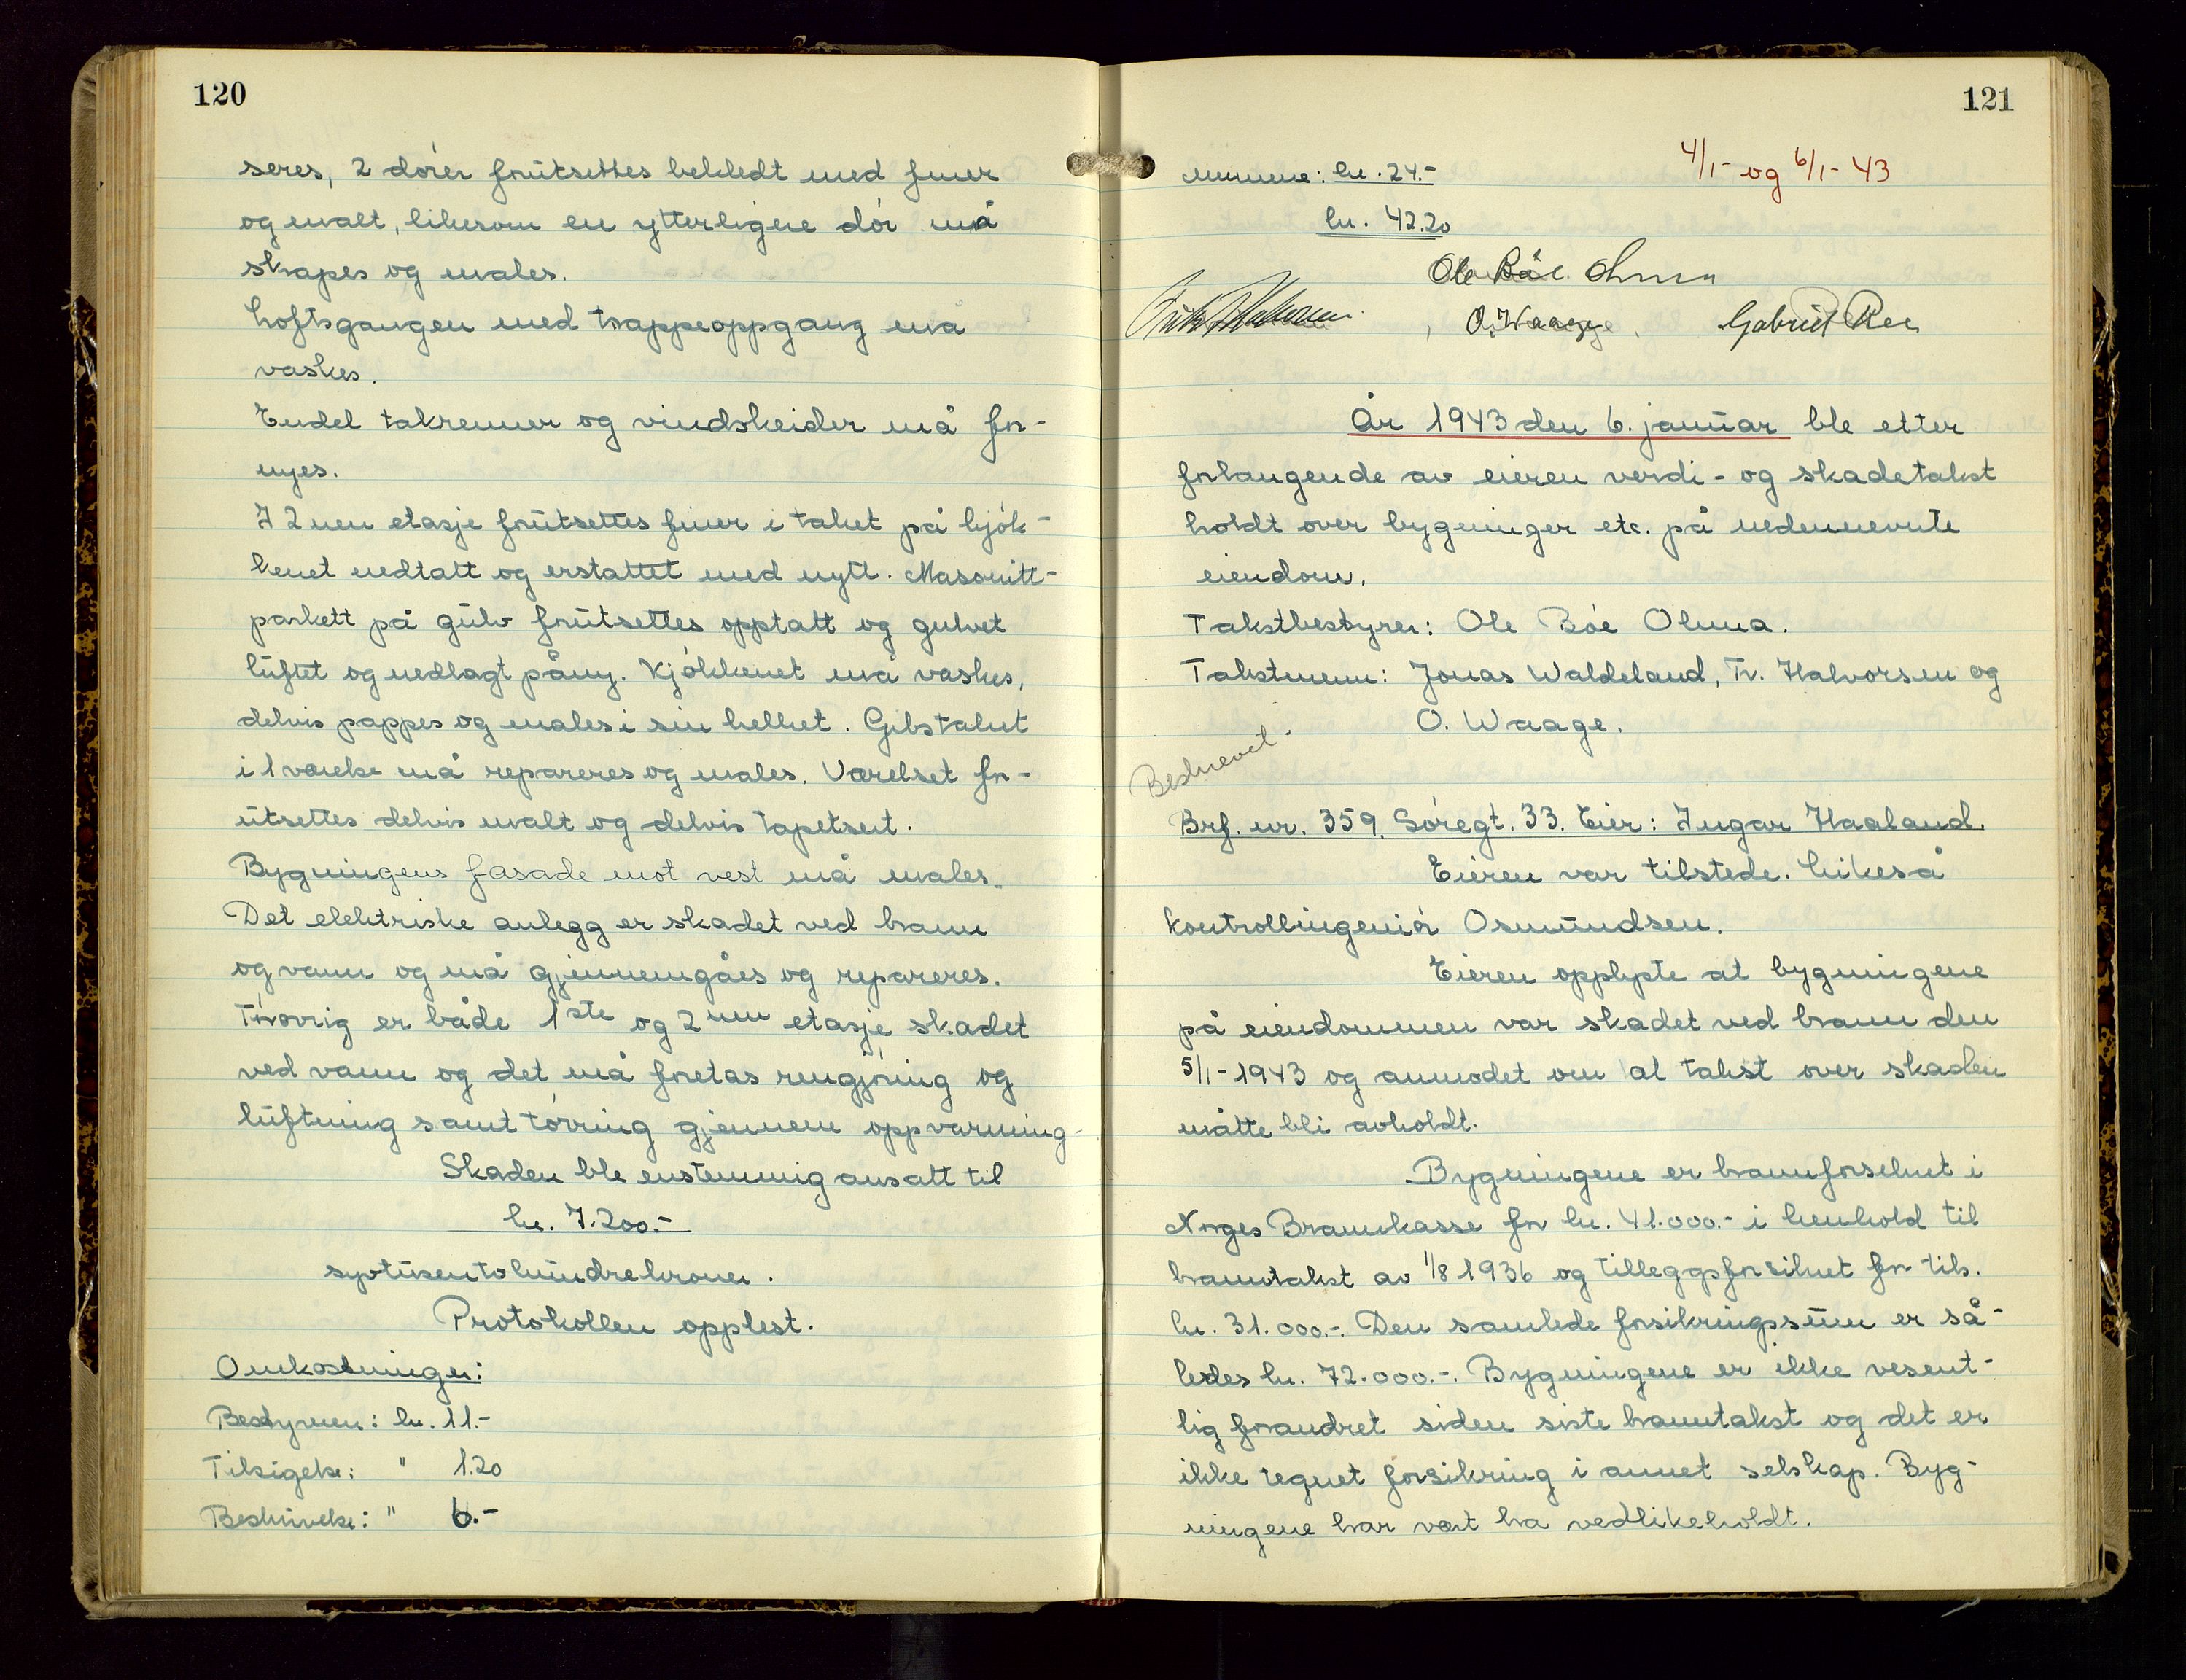 120
seres, 2 dører forutsettes bekledt med finer
og malt, likesom en ytterligere dør må
skrapes og males.
Loftsgangen med trappeoppgang må
vaskes.
Endel takrenner og vindskeider må for-
nyes.
I 2nen etasje forutsettes finer i taket på kjøk-
kenet nedtatt og erstattet med nytt. Masonitt-
parkett på gulv forutsettes opptatt og gulvet
luftet og nedlagt påny. Kjøkkenet må vaskes,
delvis pappes og males i sin helhet. Gibstaket
i 1 værelse må repareres og males. Værelset for-
utsettes delvis malt og delvis tapetsert.
Bygningens fasade mot vest må males.
Det elektriske anlegg er skadet ved brann
og vann og må gjennemgåes og repareres.
Forøvrig er både 1ste og 2nen etasje skadet
ved vann og det må foretas rengjøring og
luftning samt tørring gjennem oppvarming.
Skaden ble enstemmig ansatt til
kr. 7.200.-
syvtusentohundrekroner.
Protokollen opplest.
Omkostninger:
Bestyreren: kr. 11.-
Tilsigelse: " 1.20
Beskrivelse: " 6.-
121
4/1- og 6/1- 43
mennene: kr. 24.-
kr. 42.20
Ole Bøe Olmna
O. Waage, Gabriel
År 1943 den 6. januar ble etter
forlangende av eieren verdi- og skadetakst
holdt over bygninger etc. på nedennevnte
eiendom.
Takstbestyrer: Ole Bøe Olmna.
Takstmenn: Jonas Waldeland, Fr. Halvorsen og
O. Waage.
Beskrevet.
Brf. nr. 359. Søregt. 33. Eier: Ingar Haaland.
Eieren var tilstede. Likeså
kontrollingeniør Osmundsen.
Eieren opplyste at bygningene
på eiendommen var skadet ved brann den
5/1-1943 og anmodet om at takst over skaden
måtte bli avholdt.
Bygningene er brannforsikret i
Norges Brannkasse for kr. 41.000.- i henhold til
branntakst av 1/8 1936 og tilleggsforsikret for tils.
kr. 31.000.-. Den samlede forsikringssum er så-
ledes kr. 72.000.-. Bygningene er ikke vesent-
lig forandret siden siste branntakst og det er
ikke tegnet forsikring i annet selskap. Byg-
ningene har vært bra vedlikeholdt.